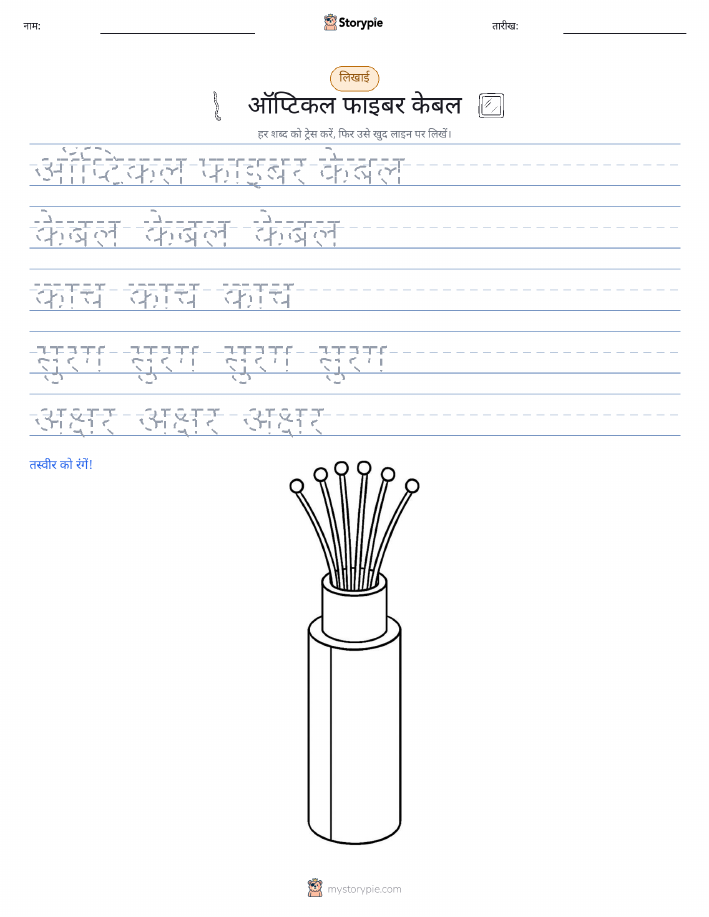 नाम:
Storypie
तारीख:
लिखाई
ऑप्टिकल फाइबर केबल
हर शब्द को ट्रेस करें, फिर उसे खुद लाइन पर लिखें।
ऑप्टिकल फाइबर केबल
केबल केबल केबल
काच काच काच
सुरग सुरग सुरग सुरग
अक्षर अक्षर अक्षर
तस्वीर को रंगें!
mystorypie.com